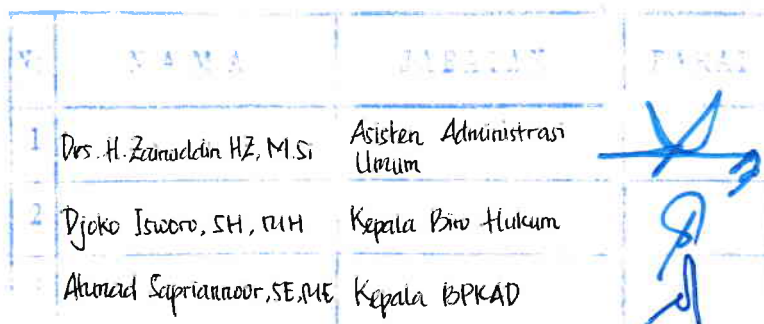 N A M A JABATAN PARAF
1 Drs. H. Zainuddin HZ, M.Si Asisten Administrasi
Umum
2 Djoko Isworo, SH, MH Kepala Biro Hukum
Ahmad Sapriannoor, SE, ME Kepala BPKAD